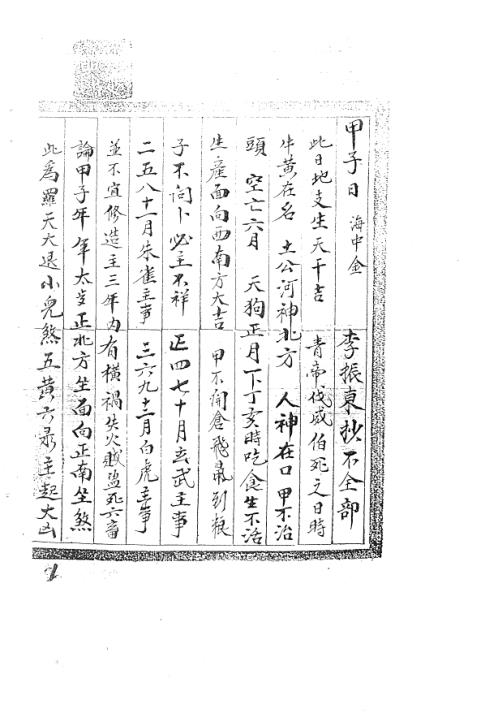 甲子日 海中金 李振東抄不全部
此日地支生天干吉 青帝伐戚伯死之日時
牛黄在名 土公河神北方 人神在口 甲不治
頭 空亡六月 天狗正月下丁亥時吃食生不活
生產面向西南方大吉 甲不開倉飛鼠到粮
子不问卜必主不祥 正四七十月玄武主事
二五八十一月朱雀主事 三六九十二月白虎主事
並不宜修造主三年内有横禍失火贼盗死六畜
論甲子年 年太岁正北方坐面向正南坐煞
此為羅天大退小兒煞五黄六录主起大凶